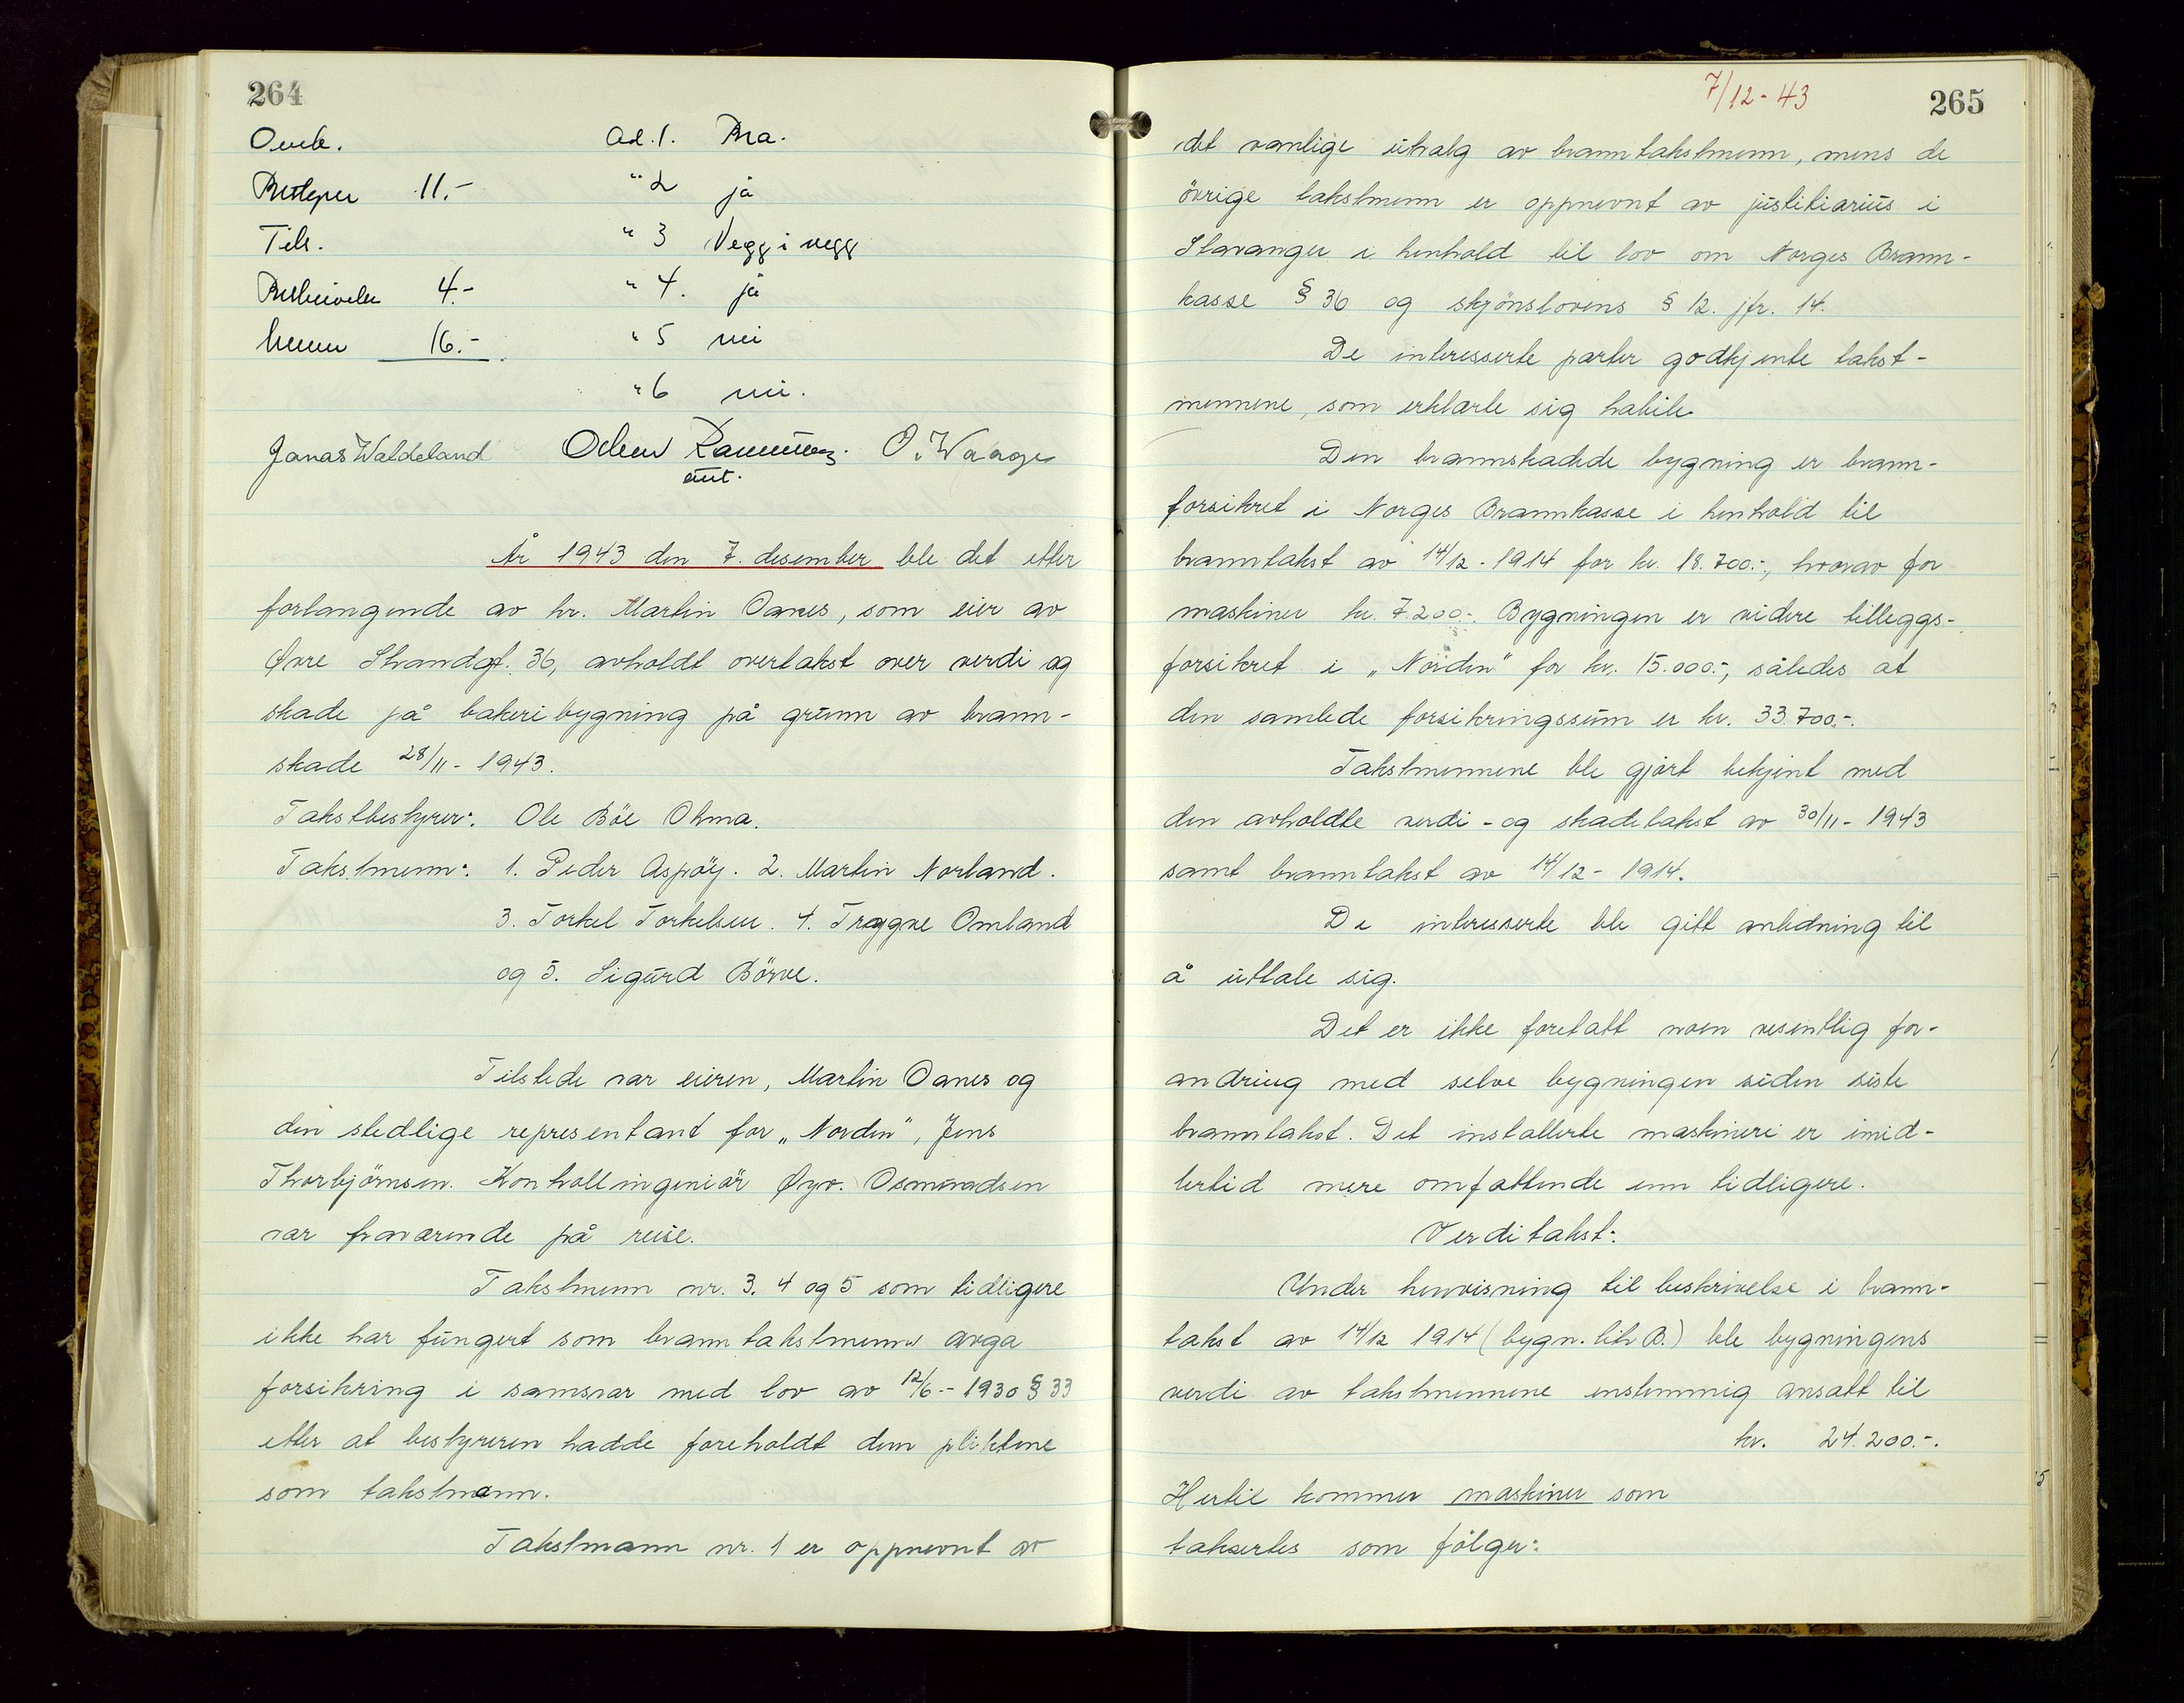 264
Ad. 1. Bra.
11.- " 2 ja
" 3 Vegg i vegg
4.- " 4. ja
16.- " 5 nei
" 6 nei.
Jonas Waldeland O. Waage
År 1943 den 7. desember ble det etter
forlangende av hr. Martin Oanes, som eier av
Øvre Strandgt. 36, avholdt overtakst over verdi og
skade på bakeribygning på grunn av brann-
skade 28/11 - 1943.
Takstbestyrer: Ole Böe Ohma.
Takstmenn: 1. Peder Aspöy. 2. Martin Norland.
3. Torkel Torkelsen. 4. Tryggve Omland
og 5. Sigurd Börve.
Tilstede var eieren, Martin Oanes og
den stedlige representant for „Norden", Jens
Thorbjörnsen. Kontrollingeniör Øyv. Osmundsen
var fraværende på reise.
Takstmenn nr. 3. 4 og 5 som tidligere
ikke har fungert som branntakstmenn avga
forsikring i samsvar med lov av 12/6 - 1930 § 33
etter at bestyreren hadde foreholdt dem pliktene
som takstmann.
Takstmann nr. 1 er oppnevnt av
7/12 - 43
265
det vanlige utvalg av branntakstmenn, mens de
övrige takstmenn er oppnevnt av justitiarius i
Stavanger i henhold til lov om Norges Brann-
kasse § 36 og skjönslovens § 12. jfr. 14.
De interesserte parter godkjente takst-
mennene, som erklærte sig habile.
Den brannskadede bygning er brann-
forsikret i Norges Brannkasse i henhold til
branntakst av 14/12 - 1914 for kr. 18.700.-, hvorav for
maskiner kr. 7.200.-. Bygningen er videre tilleggs-
forsikret i „Norden" for kr. 15.000.-, således at
den samlede forsikringssum er kr. 33.700.-.
Takstmennene ble gjort bekjent med
den avholdte verdi- og skadetakst av 30/11 - 1943
samt branntakst av 14/12 - 1914.
De interesserte ble gitt anledning til
å uttale sig.
Det er ikke foretatt noen vesentlig for-
andring med selve bygningen siden siste
branntakst. Det installerte maskineri er imid-
lertid mere omfattende enn tidligere.
Verditakst:
Under henvisning til beskrivelse i brann-
takst av 14/12 1914 (bygn. litr B.) ble bygningens
verdi av takstmennene enstemmig ansatt til
kr. 24.200.-.
Hertil kommer maskiner som
takseres som fölger: